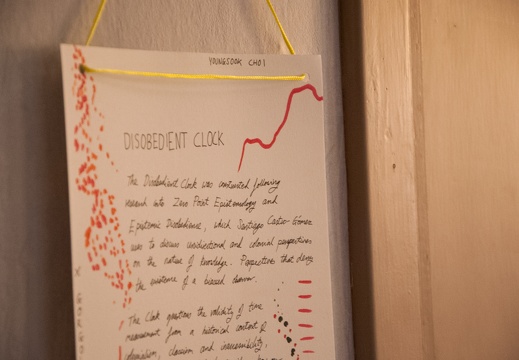 YOUNGSOOK CHOI
DISOBEDIENT CLOCK
The Disobedient Clock was contracted following
research into Zero Point Epistemology and
Epistemic Disobedience, which Santiago Castro-Gómez
uses to discuss unidirectional and colonial perspectives
on the nature of knowledge. Perspectives that deny
the existence of a biased observer.
The Clock questions the validity of time
measurement from a historical context of
colonialism, division and inaccessibility,